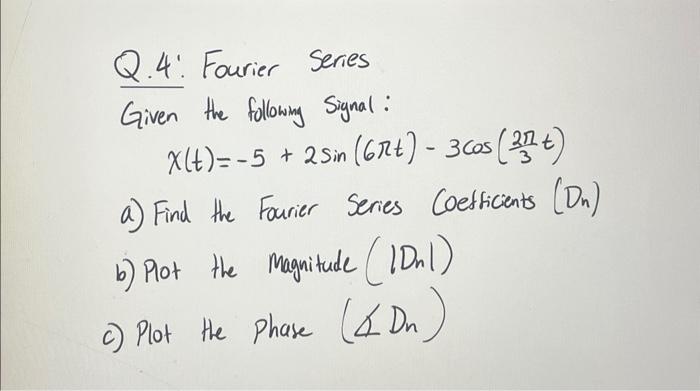 Q.4: Fourier Series
Given the following Signal:
x(t) = -5 + 2 sin (6πt) - 3 cos (2π/3 t)
a) Find the Fourier Series Coefficients (Dn)
b) Plot the Magnitude (|Dn|)
c) Plot the Phase (∡ Dn)